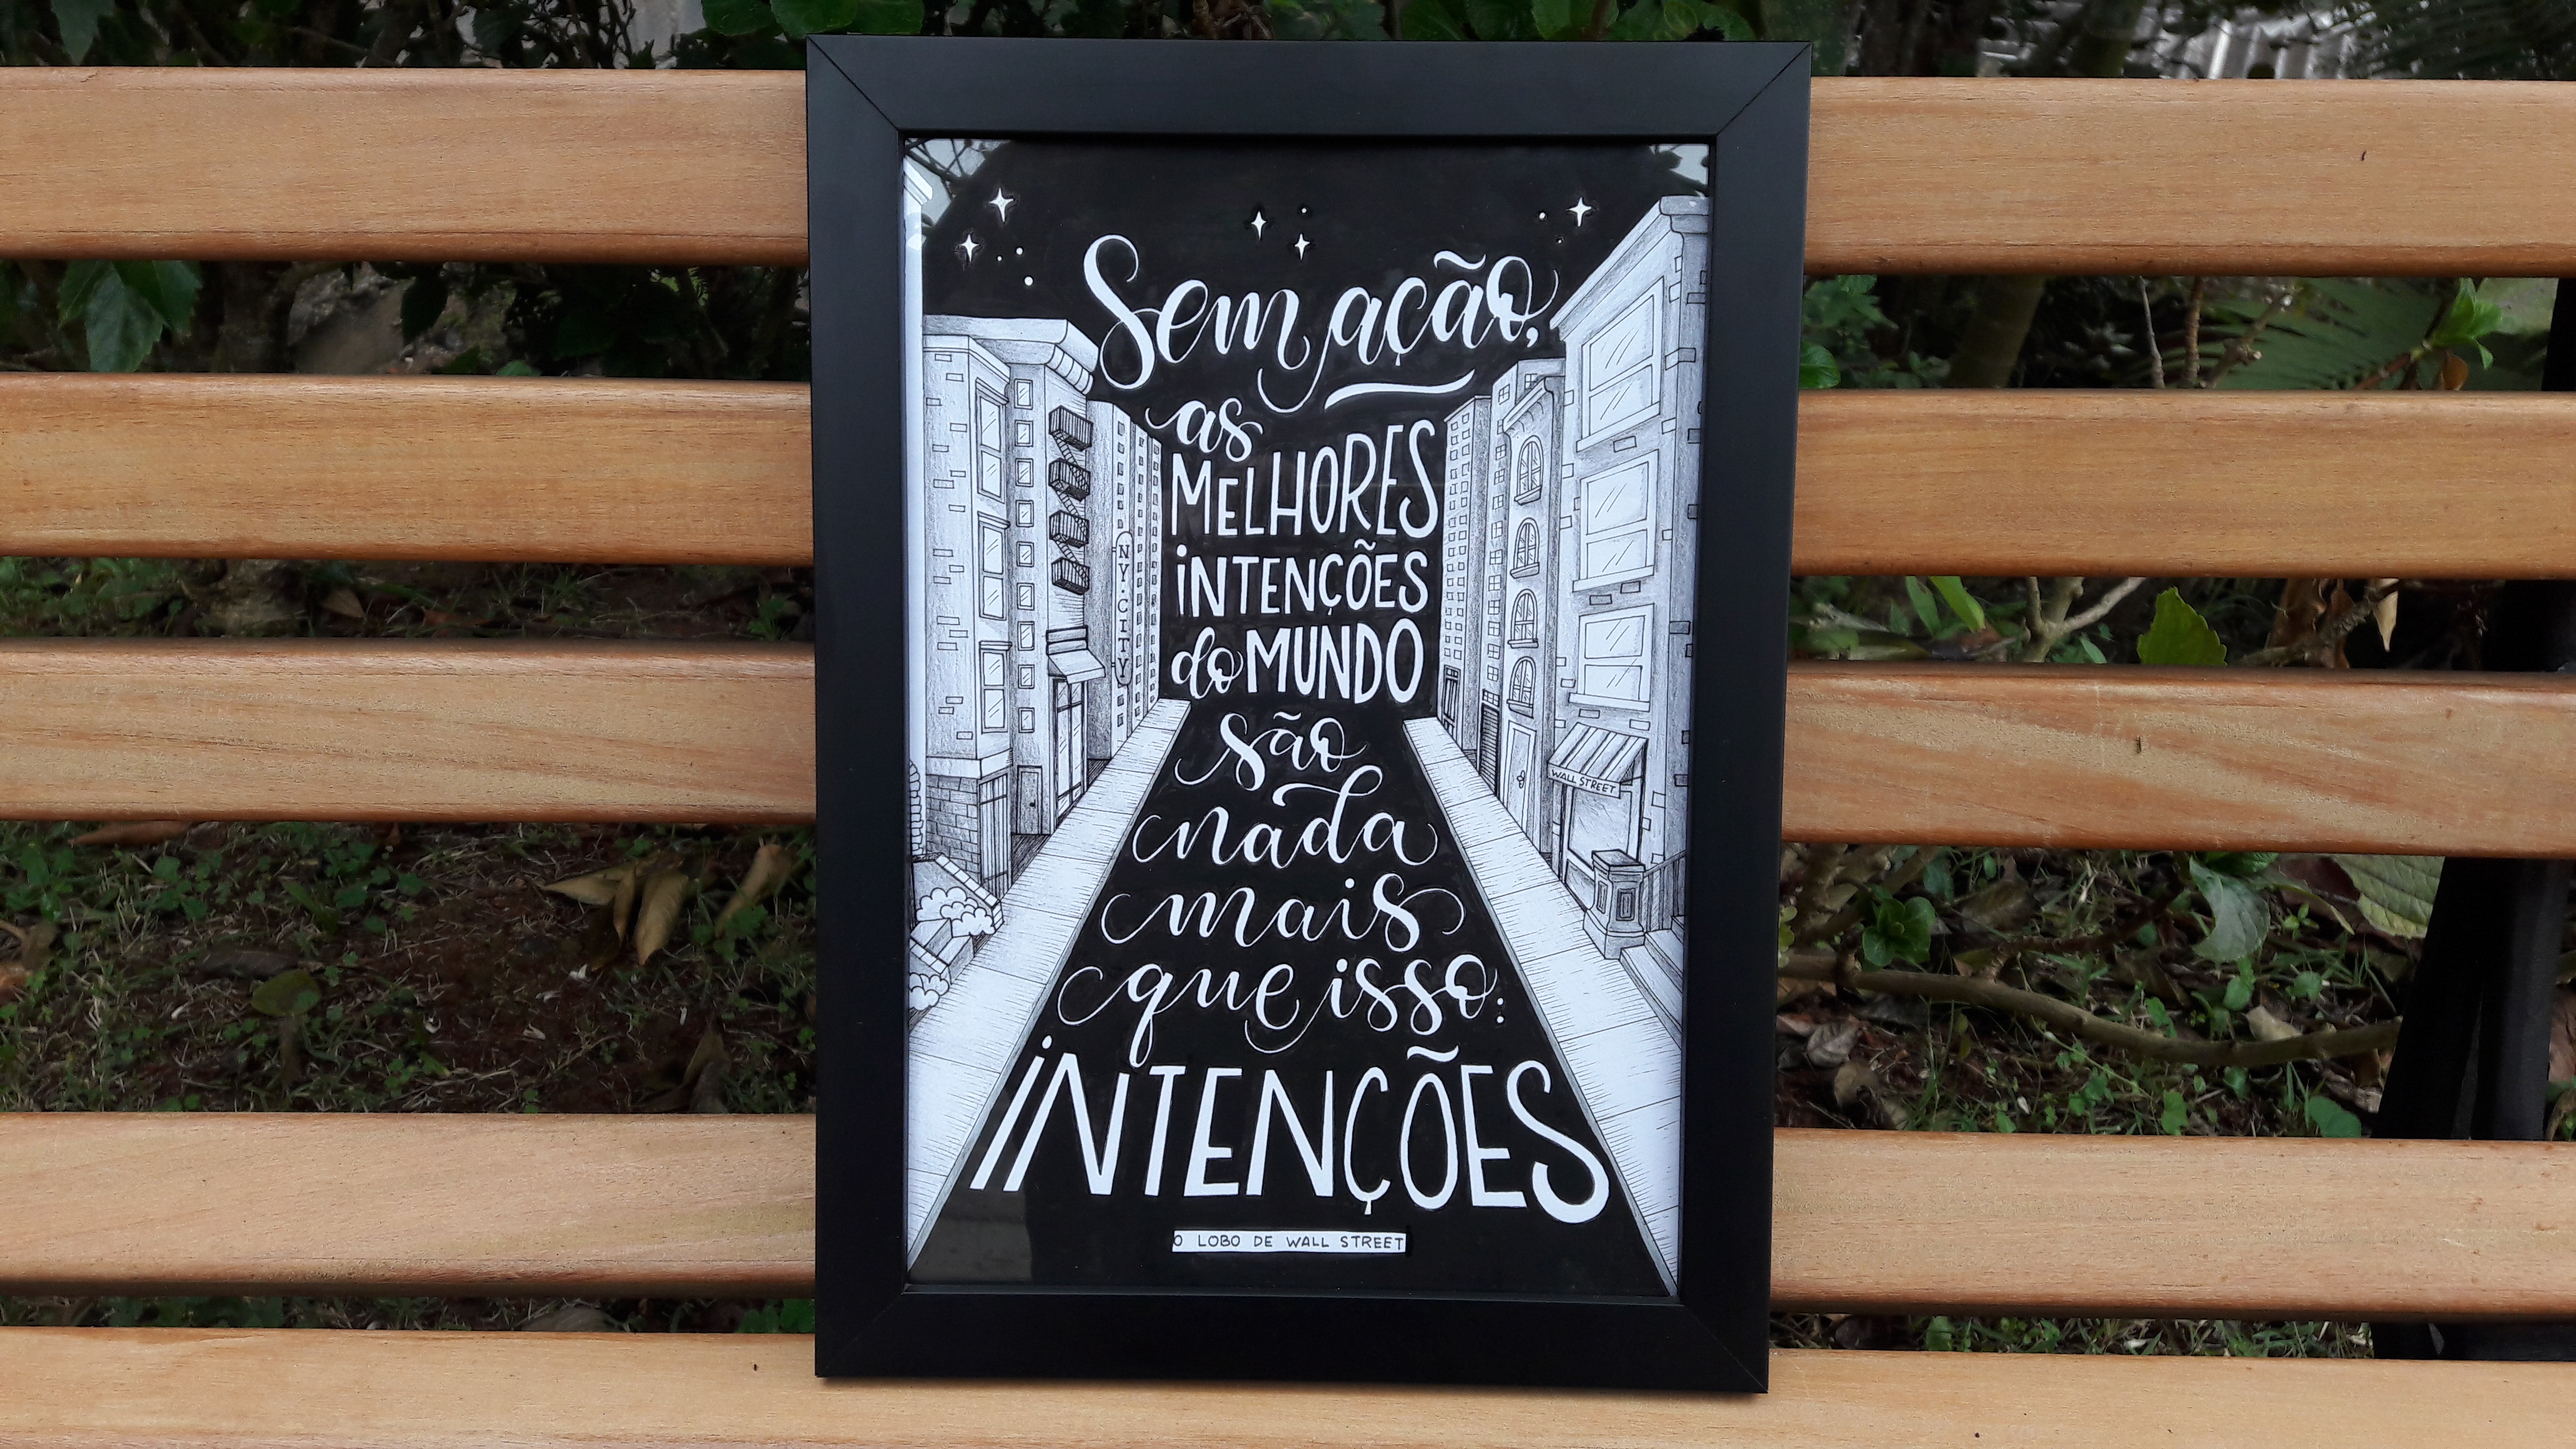 Sem ação,
as
MELHORES
iNTENÇÕES
do MUNDO
são
nada
mais
que isso:
iNTENÇÕES
O LOBO DE WALL STREET
NY.CITY
WALL STREET